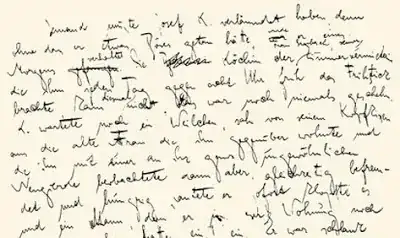 jemand mußte Josef K. verläumdet haben, denn
ohne daß er etwas Böses getan hätte,
Morgens verhaftet Die Köchin der Zimmervermieterin
die ihm jeden Tag gegen acht Uhr früh das Frühstück
brachte kam diesmal nicht Das war noch niemals geschehn.
K. wartete noch ein Weilchen, sah von seinem Kopfkissen
aus die alte Frau die ihm gegenüber wohnte und
die ihn mit einer an ihr ganz ungewöhnlichen
Neugierde beobachtete dann aber, gleichzeitig befrem-
det und hungrig, läutete er Sofort klopfte es
und ein Mann, den er in Wohnung noch
Er war schlank